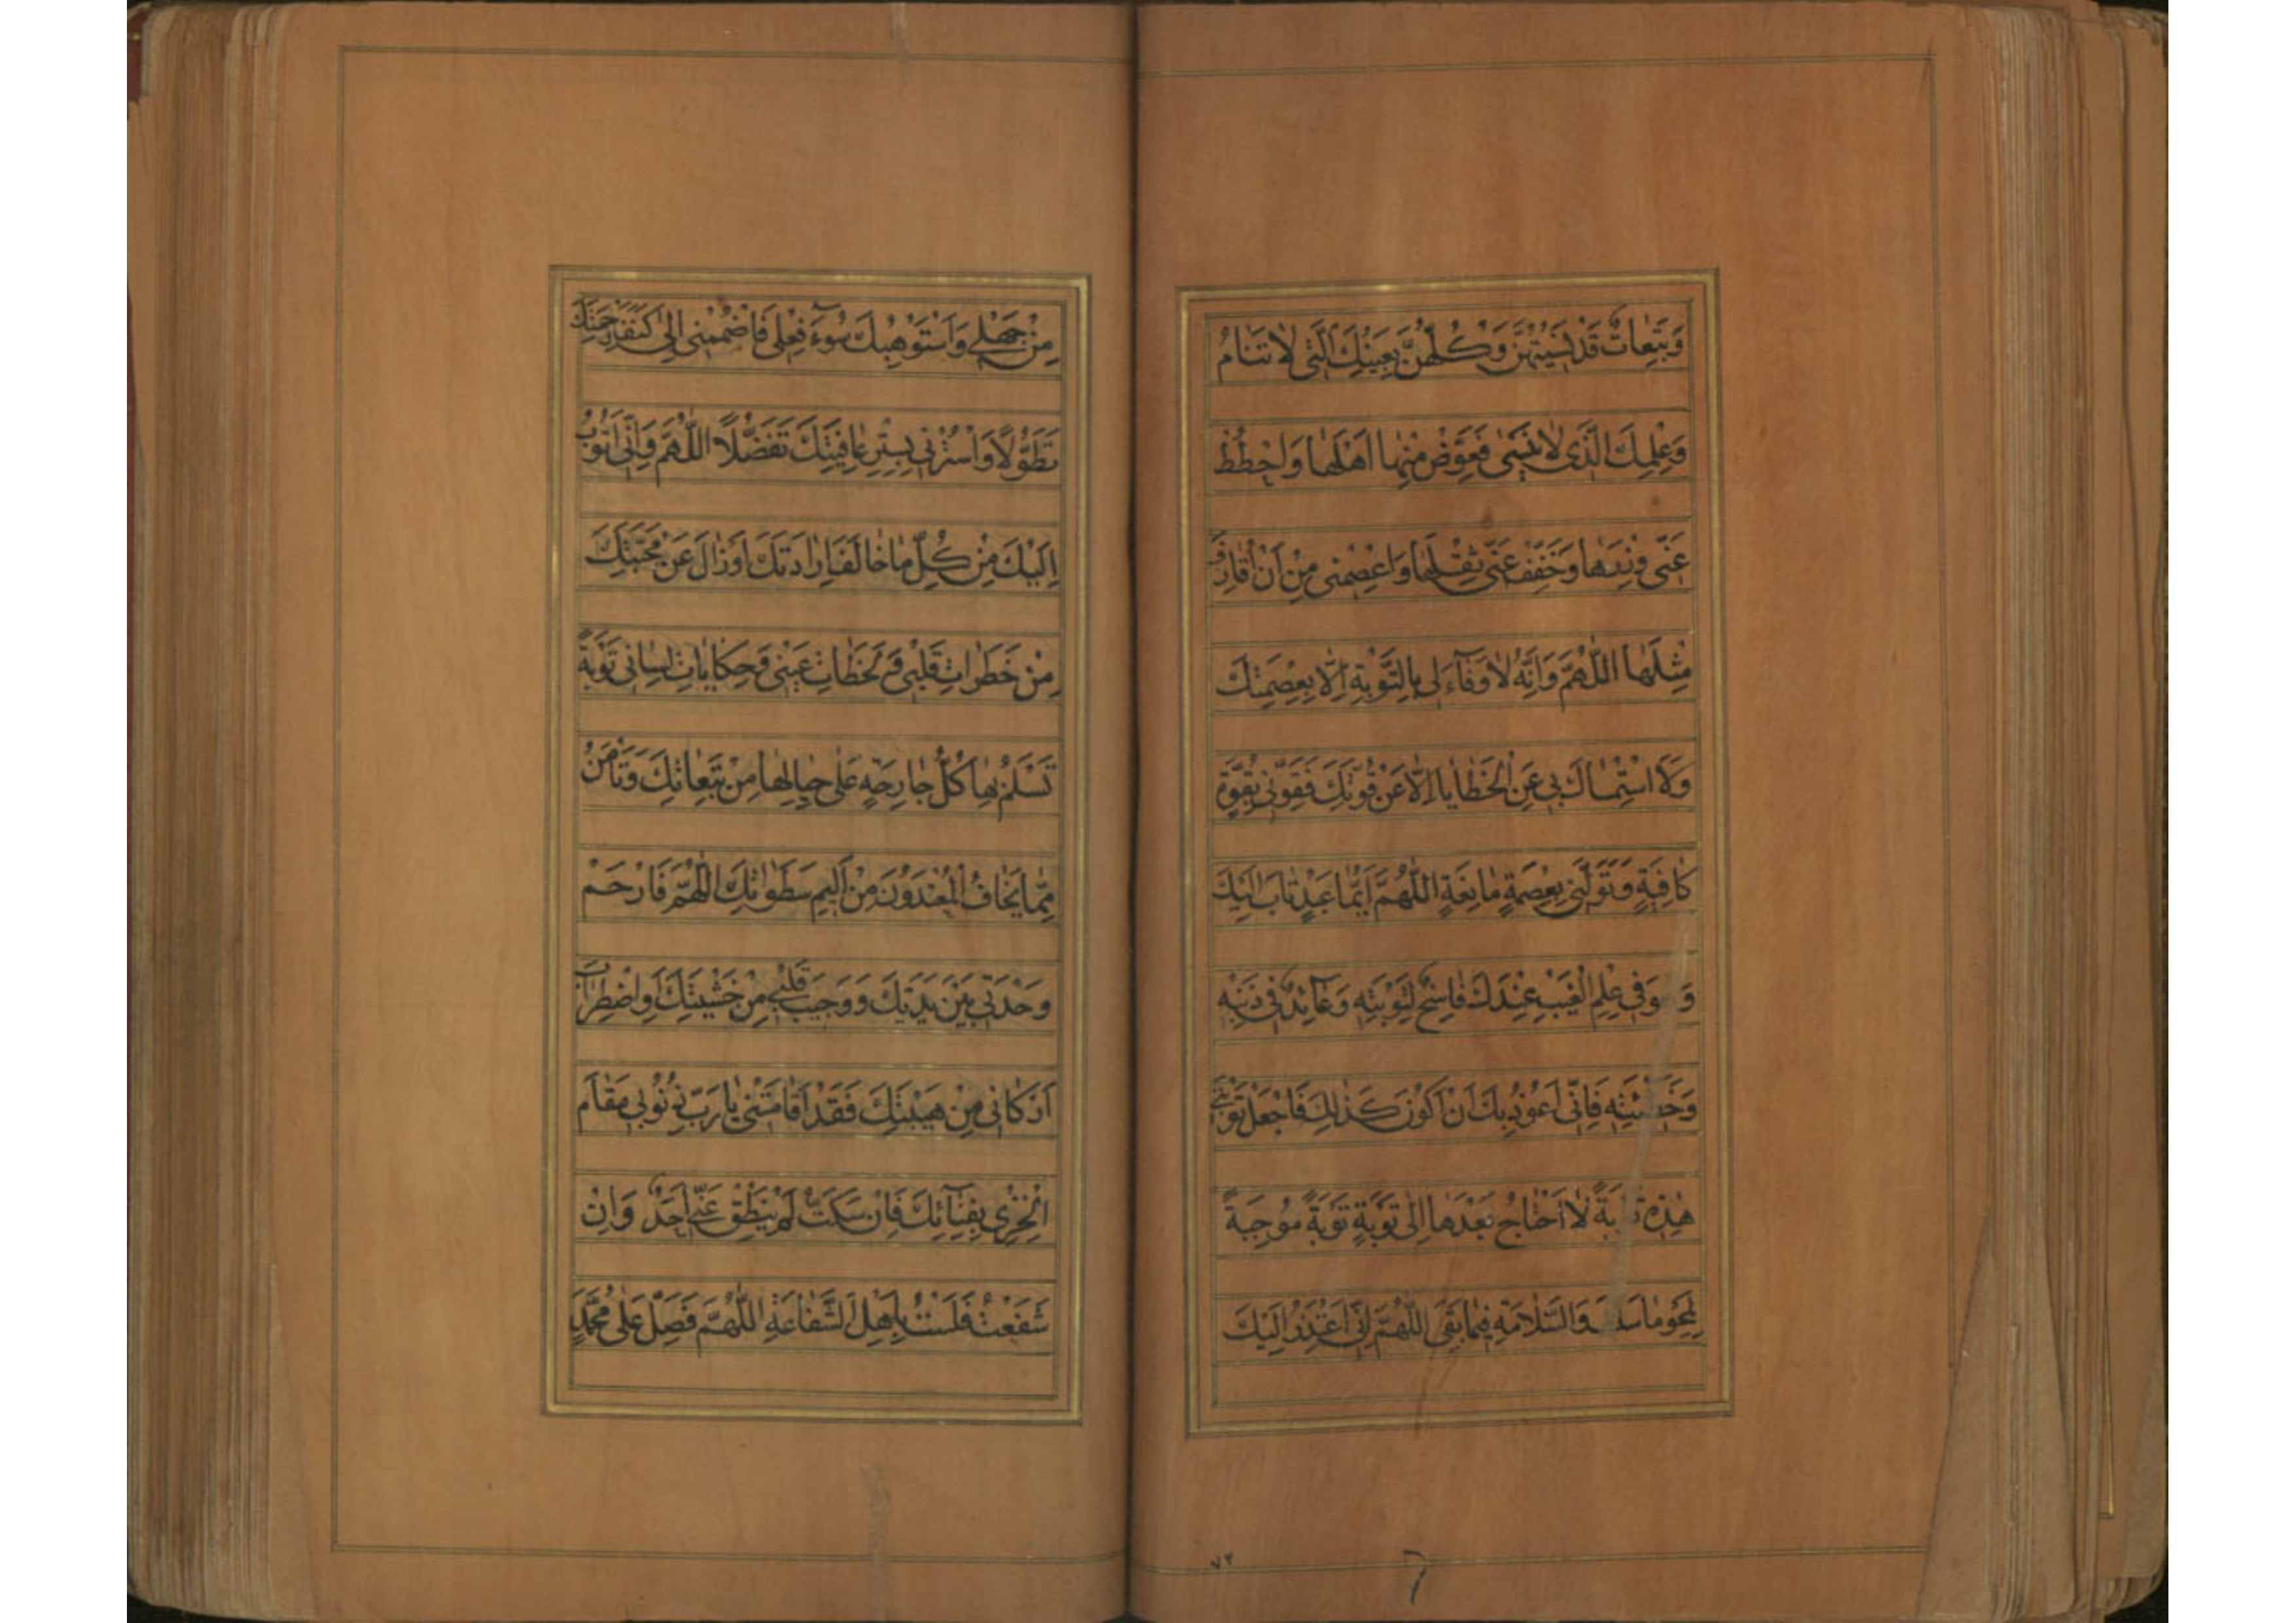 وَتَبِعَاتٌ قَدْ نَسِيتُهُنَّ وَكُلُّهُنَّ بِعَيْنِكَ الَّتِى لَا تَنَامُ
وَعِلْمِكَ الَّذِى لَا يَنْسَى فَعَوِّضْ مِنْهَا اَهْلَهَا وَاحْطُطْ
عَنِّى وِزْرَهَا وَخَفِّفْ عَنِّى ثِقْلَهَا وَاعْصِمْنِى مِنْ اَنْ اُقَارِفَ
مِثْلَهَا اَللّٰهُمَّ وَاِنَّهُ لَا وَفَآءَ لِى بِالتَّوْبَةِ اِلَّا بِعِصْمَتِكَ
وَلَا اسْتِمْسَاكَ بِى عَنِ الْخَطَايَا اِلَّا عَنْ قُوَّتِكَ فَقَوِّنِى بِقُوَّةٍ
كَافِيَةٍ وَتَوَلَّنِى بِعِصْمَةٍ مَانِعَةٍ اَللّٰهُمَّ اَيُّمَا عَبْدٍ تَابَ اِلَيْكَ
وَهُوَ فِى عِلْمِ الْغَيْبِ عِنْدَكَ فَاسِخٌ لِتَوْبَتِهِ وَعَآئِدٌ فِى ذَنْبِهِ
وَخَطِيئَتِهِ فَاِنِّى اَعُوذُ بِكَ اَنْ اَكُونَ كَذٰلِكَ فَاجْعَلْ تَوْبَتِى
هٰذِهِ تَوْبَةً لَا اَحْتَاجُ بَعْدَهَا اِلَى تَوْبَةٍ تَوْبَةً مُوجِبَةً
لِمَحْوِ مَا سَلَفَ وَالسَّلَامَةِ فِيمَا بَقِىَ اَللّٰهُمَّ اِنِّى اَعْتَذِرُ اِلَيْكَ
٧٢
مِنْ جَهْلِى وَاَسْتَوْهِبُكَ سُوٓءَ فِعْلِى فَاضْمُمْنِى اِلَى كَنَفِ رَحْمَتِكَ
تَطَوُّلًا وَاسْتُرْنِى بِسِتْرِ عَافِيَتِكَ تَفَضُّلًا اَللّٰهُمَّ وَاِنِّى اَتُوبُ
اِلَيْكَ مِنْ كُلِّ مَا خَالَفَ اِرَادَتَكَ اَوْ زَالَ عَنْ مَحَبَّتِكَ
مِنْ خَطَرَاتِ قَلْبِى وَلَحَظَاتِ عَيْنِى وَحِكَايَاتِ لِسَانِى تَوْبَةً
تَسْلَمُ بِهَا كُلُّ جَارِحَةٍ عَلَى حِيَالِهَا مِنْ تَبِعَاتِكَ وَتَأْمَنُ
مِمَّا يَخَافُ الْمُعْتَدُونَ مِنْ اَلِيمِ سَطَوَاتِكَ اَللّٰهُمَّ فَارْحَمْ
وَحْدَتِى بَيْنَ يَدَيْكَ وَوَجِيبَ قَلْبِى مِنْ خَشْيَتِكَ وَاضْطِرَابَ
اَرْكَانِى مِنْ هَيْبَتِكَ فَقَدْ اَقَامَتْنِى يَا رَبِّ ذُنُوبِى مَقَامَ
الْخِزْىِ بِفِنَآئِكَ فَاِنْ سَكَتُّ لَمْ يَنْطِقْ عَنِّى اَحَدٌ وَاِنْ
شَفَعْتُ فَلَسْتُ بِاَهْلِ الشَّفَاعَةِ اَللّٰهُمَّ فَصَلِّ عَلَى مُحَمَّدٍ